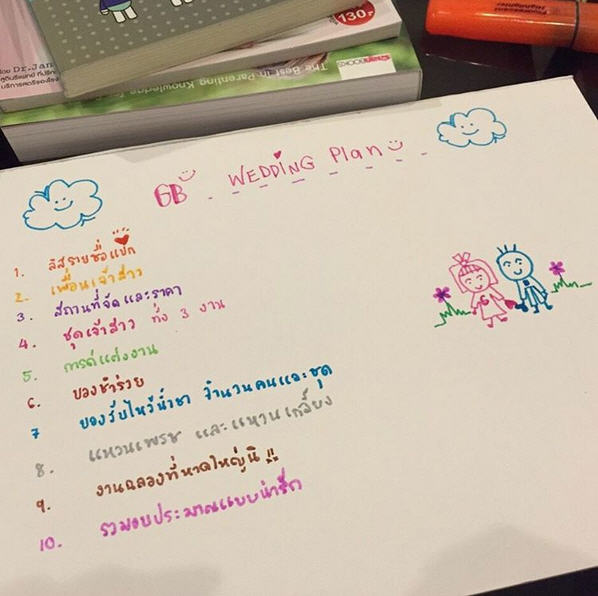 130.-
โดย Dr.Jan
บริการสตรีของเรื่อง
The Best in Parenting Knowledge
GB WEDDING Plan
1. ลิสรายชื่อแขก
2. เพื่อนเจ้าสาว
3. สถานที่จัดและราคา
4. ชุดเจ้าสาว ทั้ง 3 งาน
5. การ์ดแต่งงาน
6. ของชำร่วย
7 ของรับไหว้น้ำชา จำนวนคนและชุด
8. แหวนเพชร และแหวนเกลี้ยง
9. งานฉลองที่หาดใหญ่นิ !!
10. รวมงบประมาณแบบน่ารัก
G